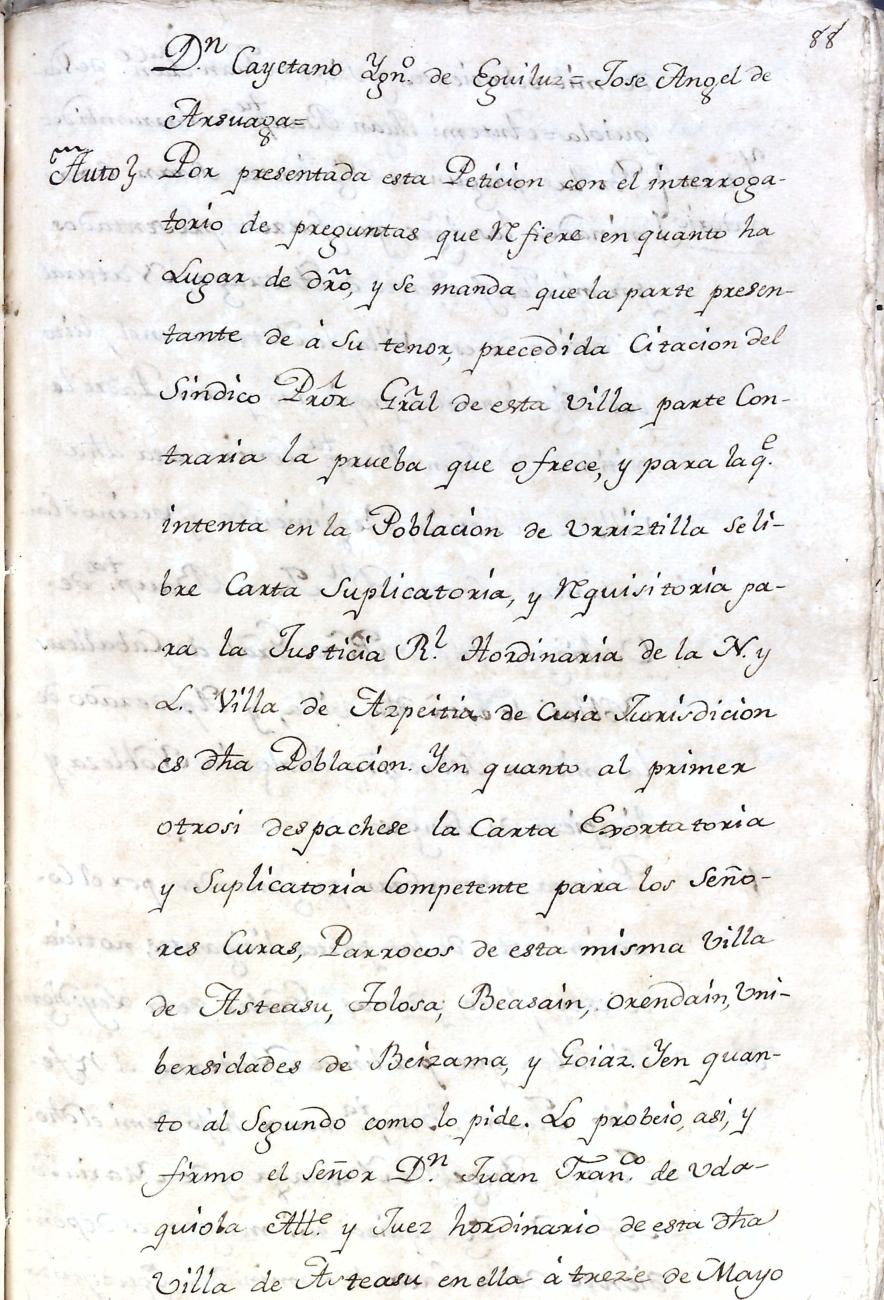 88
Dn Cayetano Ygno. de Eguiluz= Jose Angel de
Arsuaga=
Auto} Por presentada esta Peticion con el interroga-
torio de preguntas que Rfiere en quanto ha
Lugar de dro, y se manda que la parte presen-
tante de à su tenor, precedida Citacion del
Sindico Pror Gral de esta villa parte Con-
traria la prueba que ofrece, y para la qe.
intenta en la Poblacion de Vrriztilla se li-
bre Carta Suplicatoria, y Rquisitoria pa-
ra la Justicia Rl. Hordinaria de la N. y
L. Villa de Azpeitia de Cuia Jurisdicion
es dha Poblacion. Y en quanto al primer
otrosi despachese la Carta Exortatoria
y Suplicatoria Competente para los Seño-
res Curas, Parrocos de esta misma villa
de Asteasu, Tolosa, Beasain, orendain, Vni-
bersidades de Beizama, y Goiaz. Y en quan-
to al Segundo como lo pide. Lo probeio, asi, y
firmo el señor Dn. Juan Franco. de Vda-
guiola Alle. y Juez hordinario de esta dha
Villa de Asteasu en ella à treze de Mayo